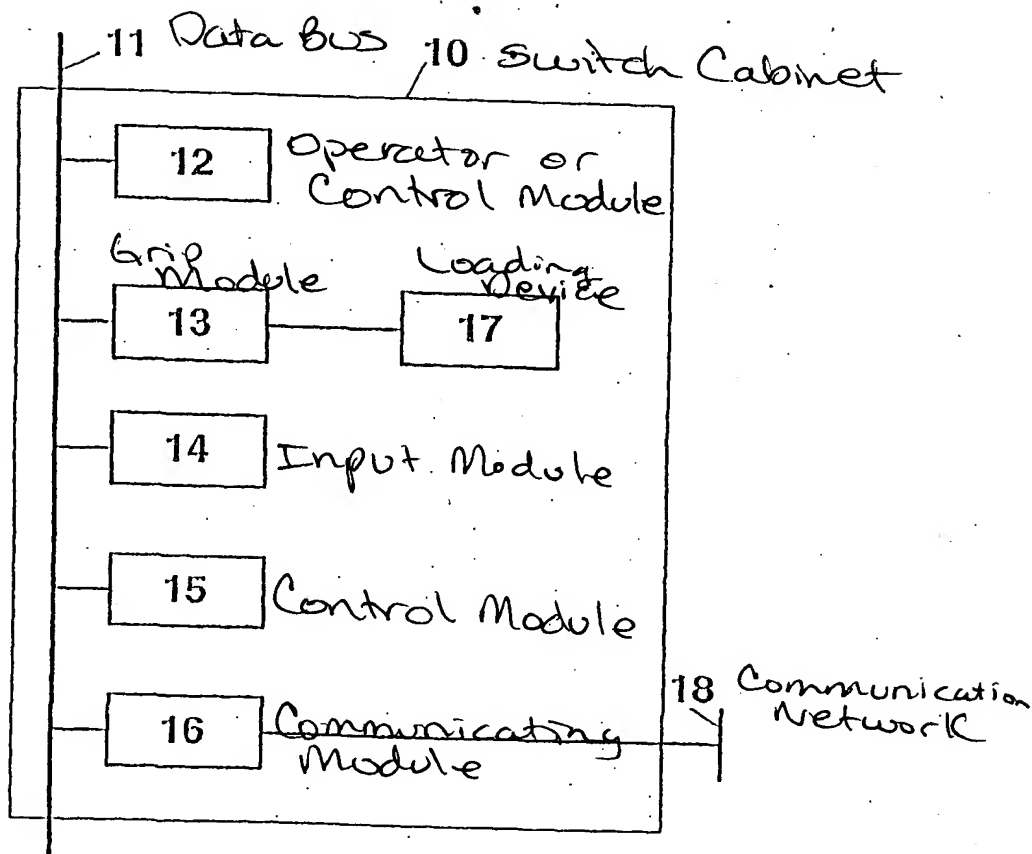 11 Data Bus
10 Switch Cabinet
12 Operator or
Control Module
Grip
Module
Loading
Device
13
17
14 Input Module
15 Control Module
16 Communicating
Module
18 Communication
Network